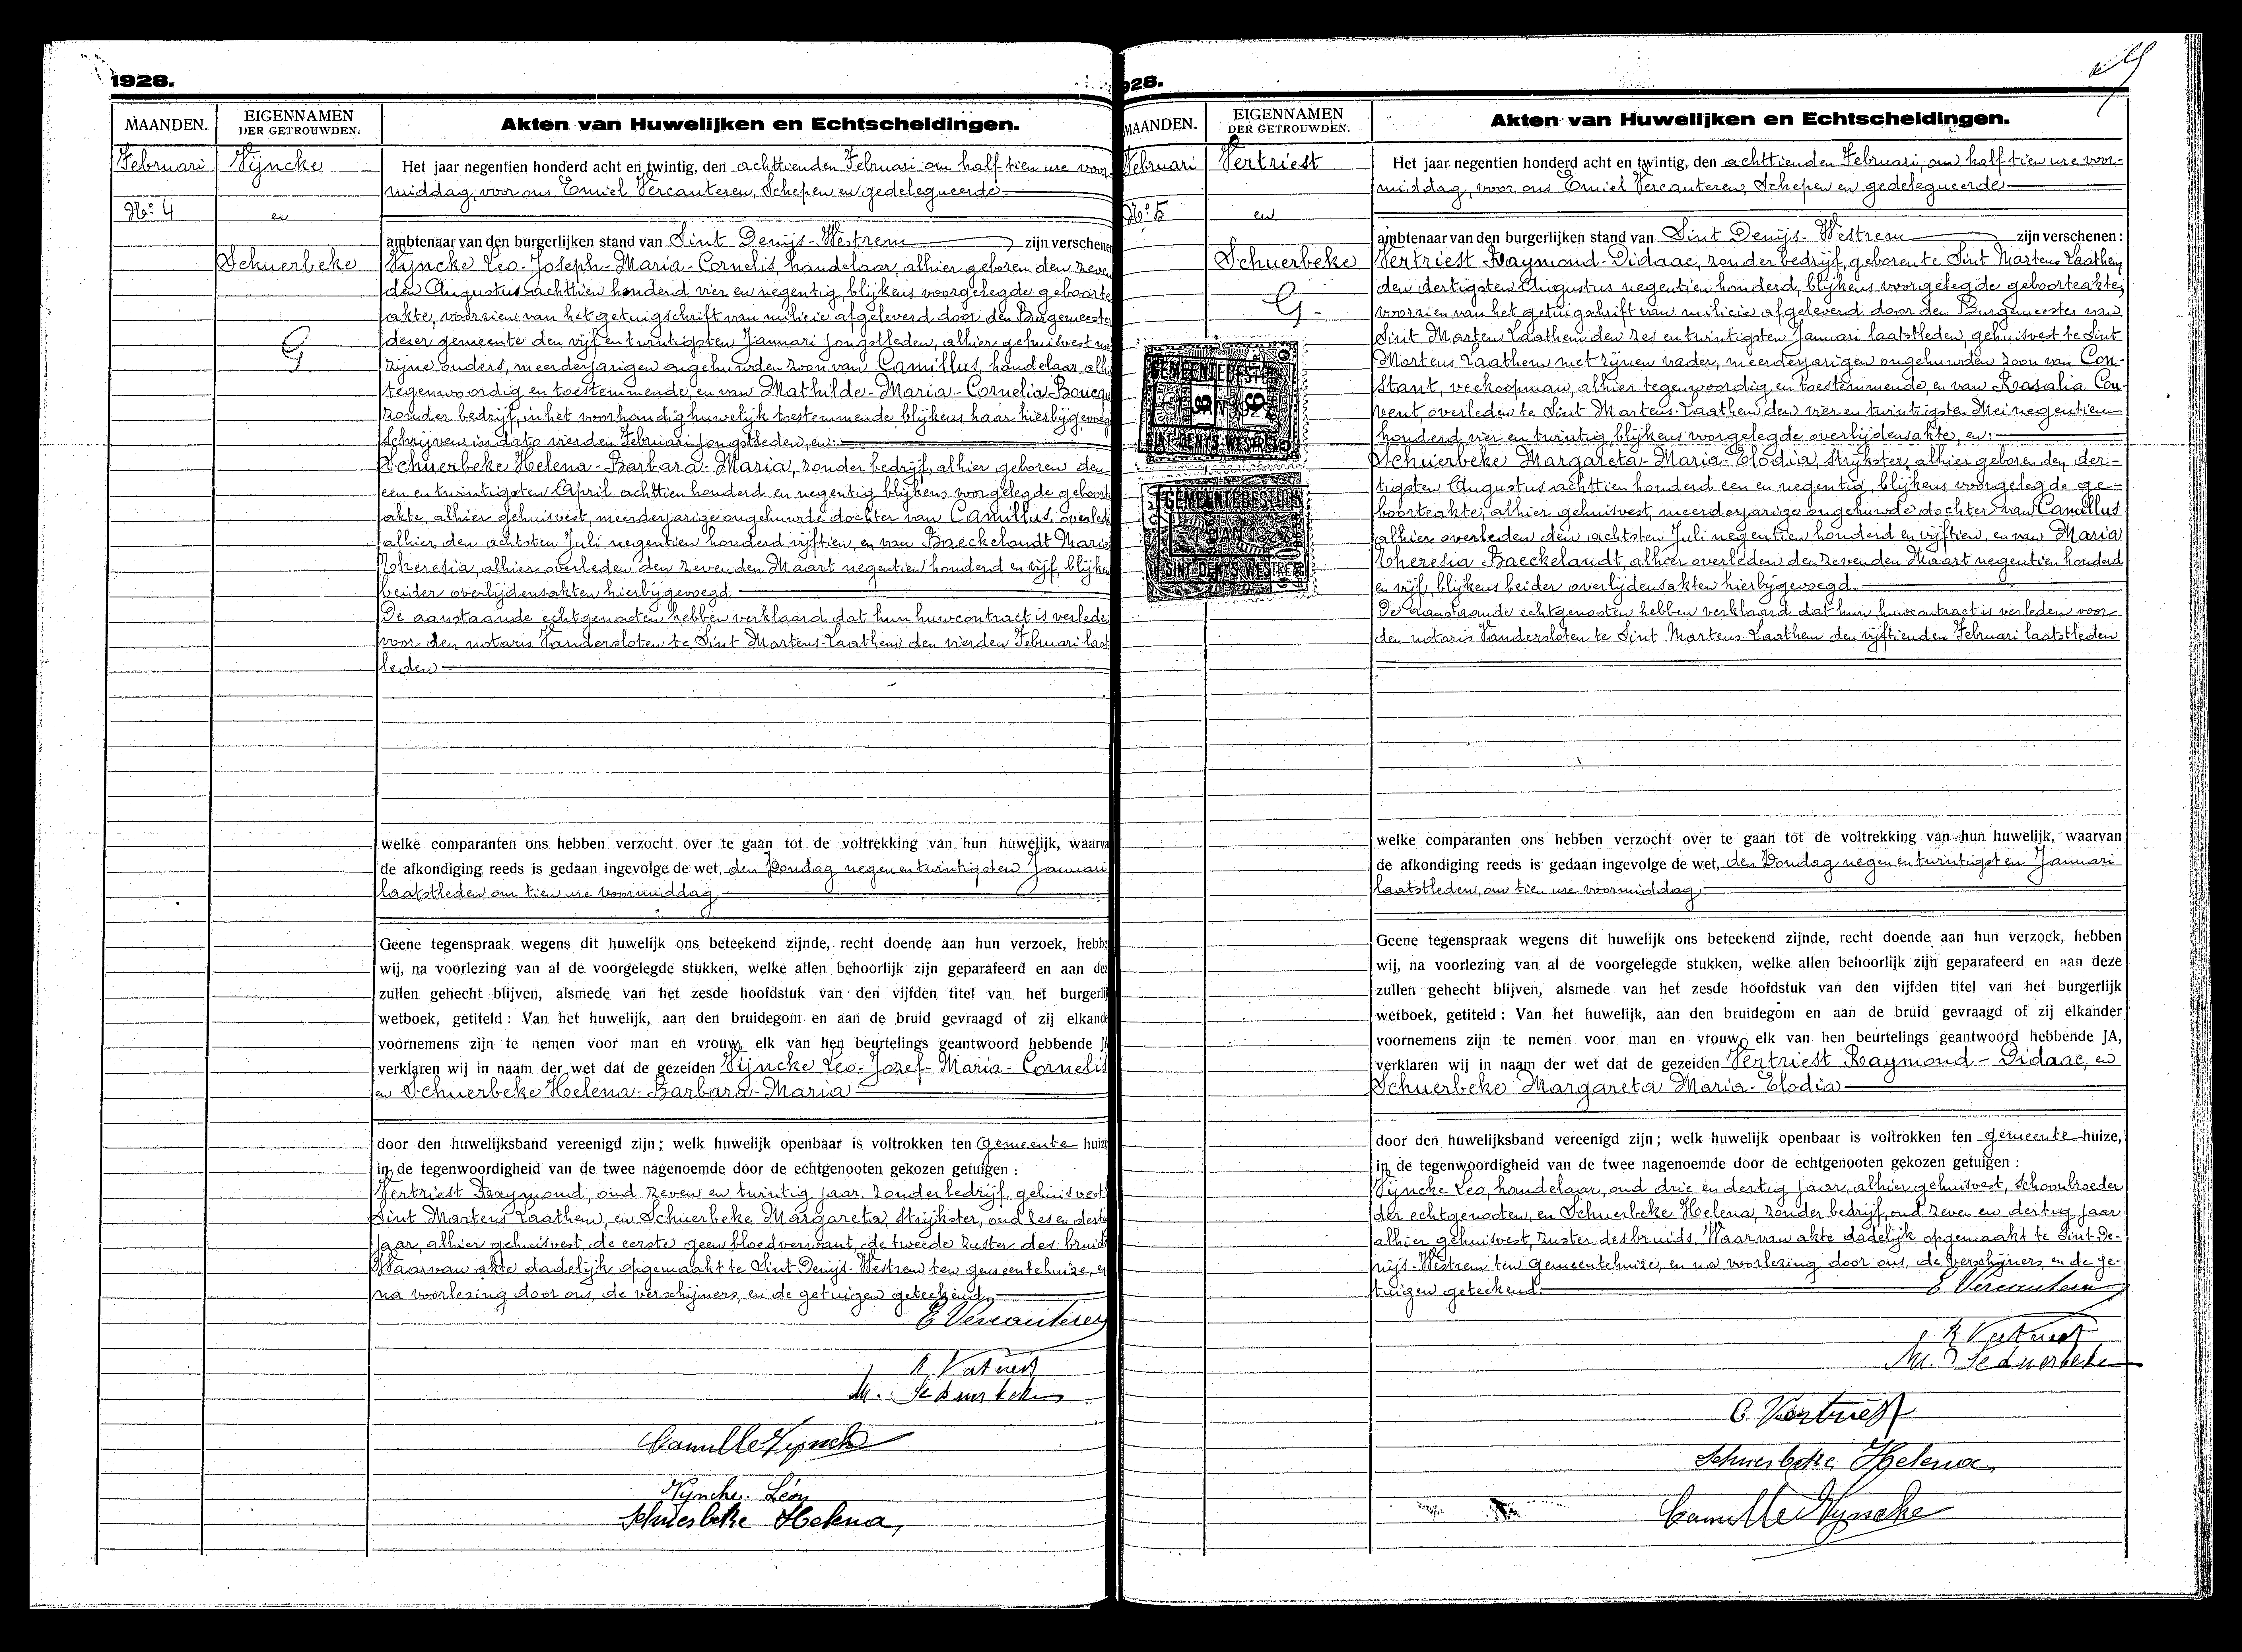 1928.
MAANDEN.
EIGENNAMEN
DER GETROUWDEN.
Akten van Huwelijken en Echtscheidingen.
Februari
Vijncke
No: 4
en
Schuerbeke
G
Het jaar negentien honderd acht en twintig, den achttienden Februari om half tien ure voor-
middag, voor ons Emiel Vercauteren, Schepen en gedelegueerde
ambtenaar van den burgerlijken stand van Sint Denijs-Westrem zijn verschenen
Vyncke Leo-Joseph-Maria-Cornelis, handelaar, alhier geboren den zeven
den Augustus achttien honderd vier en negentig, blijkens voorgelegde geboorte
akte, voorzien van het getuigschrift van milicie afgeleverd door den Burgemeester
dezer gemeente den vijf en twintigsten Januari jongstleden, alhier gehuisvest met
zijne ouders, meerderjarigen ongehuwden zoon van Camillus, handelaar, alhier
tegenwoordig en toestemmende, en van Mathilde-Maria-Cornelia
zonder bedrijf, in het voorhandig huwelijk toestemmende blijkens haar hierbijgevoeg
schrijven in dato vierden Februari jongstleden, en:
Schuerbeke Helena-Barbara-Maria, zonder bedrijf, alhier geboren den
een en twintigsten April achttien honderd en negentig blijkens voorgelegde geboorte
akte, alhier gehuisvest, meerderjarige ongehuwde dochter van Camillus, overleden
alhier den achtsten Juli negentien honderd vijftien, en van Baeckelandt Maria
Theresia, alhier overleden den zevenden Maart negentien honderd en vijf, blijkens
beider overlijdensakten hierbijgevoegd
De aanstaande echtgenooten hebben verklaard dat hun huwcontract is verleden
voor den notaris Vandersloten te Sint Martens-Laathem den vierden Februari laatst
leden
welke comparanten ons hebben verzocht over te gaan tot de voltrekking van hun huwelijk, waarva
de afkondiging reeds is gedaan ingevolge de wet, den Zondag negen en twintigsten Januari
laatstleden om tien ure voormiddag
Geene tegenspraak wegens dit huwelijk ons beteekend zijnde, recht doende aan hun verzoek, hebbe
wij, na voorlezing van al de voorgelegde stukken, welke allen behoorlijk zijn geparafeerd en aan de
zullen gehecht blijven, alsmede van het zesde hoofdstuk van den vijfden titel van het burgerlij
wetboek, getiteld: Van het huwelijk, aan den bruidegom en aan de bruid gevraagd of zij elkande
voornemens zijn te nemen voor man en vrouw, elk van hen beurtelings geantwoord hebbende J
verklaren wij in naam der wet dat de gezeiden Vijncke Leo-Jozef-Maria-Cornelis
en Schuerbeke Helena-Barbara-Maria
door den huwelijksband vereenigd zijn; welk huwelijk openbaar is voltrokken ten Gemeente huize
in de tegenwoordigheid van de twee nagenoemde door de echtgenooten gekozen getuigen:
Vertriest Raymond, oud zeven en twintig jaar, zonder bedrijf, gehuisvest
Sint Martens Laathem, en Schuerbeke Margareta, Strijkster, oud zes en dertig
jaar, alhier gehuisvest, de eerste geen bloedverwant, de tweede zuster des bruids
Waarvan akte dadelijk opgemaakt te Sint Denijs-Westrem ten gemeentehuize, en
na voorlezing door ons, de verschijners, en de getuigen geteekend
E Vercauteren
R Vertriest
M. Schuerbeke
Camille Vyncke
Vyncke Léon
Schuerbeke Helena
928.
MAANDEN.
EIGENNAMEN
DER GETROUWDEN.
Akten van Huwelijken en Echtscheidingen.
Februari
Vertriest
No: 5
en
Schuerbeke
G
GEMEENTEBESTUUR
SINT-DENYS-WESTREM
GEMEENTEBESTUUR
SINT-DENYS-WESTREM
Het jaar negentien honderd acht en twintig, den achttienden Februari, om half tien ure voor-
middag, voor ons Emiel Vercauteren, Schepen en gedelegueerde
ambtenaar van den burgerlijken stand van Sint Denijs-Westrem zijn verschenen:
Vertriest Raymond-Didaac, zonder bedrijf, geboren te Sint Martens Laathem
den dertigsten Augustus negentien honderd, blijkens voorgelegde geboorteakte,
voorzien van het getuigschrift van milicie afgeleverd door den Burgemeester van
Sint Martens Laathem den zes en twintigsten Januari laatstleden, gehuisvest te Sint
Martens Laathem met zijnen vader, meerderjarigen ongehuwden zoon van Con-
stant, veekoopman, alhier tegenwoordig en toestemmende, en van Rosalia Cou-
vent, overleden te Sint Martens-Laathem den vier en twintigsten Mei negentien
honderd vier en twintig, blijkens voorgelegde overlijdensakte, en:
Schuerbeke Margareta-Maria-Elodia, Strijkster, alhier geboren den der-
tigsten Augustus achttien honderd een en negentig, blijkens voorgelegde ge-
boorteakte, alhier gehuisvest, meerderjarige ongehuwde dochter van Camillus
alhier overleden den achtsten Juli negentien honderd en vijftien, en van Maria
Theresia Baeckelandt, alhier overleden den zevenden Maart negentien honderd
en vijf, blijkens beider overlijdensakten hierbijgevoegd.
De aanstaande echtgenooten hebben verklaard dat hun huwcontract is verleden voor
den notaris Vandersloten te Sint Martens Laathem den vijftienden Februari laatstleden
welke comparanten ons hebben verzocht over te gaan tot de voltrekking van hun huwelijk, waarvan
de afkondiging reeds is gedaan ingevolge de wet, den Zondag negen en twintigsten Januari
laatstleden, om tien ure voormiddag
Geene tegenspraak wegens dit huwelijk ons beteekend zijnde, recht doende aan hun verzoek, hebben
wij, na voorlezing van al de voorgelegde stukken, welke allen behoorlijk zijn geparafeerd en aan deze
zullen gehecht blijven, alsmede van het zesde hoofdstuk van den vijfden titel van het burgerlijk
wetboek, getiteld: Van het huwelijk, aan den bruidegom en aan de bruid gevraagd of zij elkander
voornemens zijn te nemen voor man en vrouw, elk van hen beurtelings geantwoord hebbende JA,
verklaren wij in naam der wet dat de gezeiden Vertriest Raymond-Didaac, en
Schuerbeke Margareta Maria-Elodia
door den huwelijksband vereenigd zijn; welk huwelijk openbaar is voltrokken ten gemeente huize,
in de tegenwoordigheid van de twee nagenoemde door de echtgenooten gekozen getuigen:
Vijncke Leo, handelaar, oud drie en dertig jaar, alhier gehuisvest, schoonbroeder
der echtgenooten, en Schuerbeke Helena, zonder bedrijf, oud zeven en dertig jaar
alhier gehuisvest, zuster des bruids. Waarvan akte dadelijk opgemaakt te Sint-De-
nijs-Westrem ten gemeentehuize, en na voorlezing door ons, de verschijners, en de ge-
tuigen geteekend.
E Vercauteren
R Vertriest
M. Schuerbeke
C Vertriest
Schuerbeke Helena
Camille Vyncke